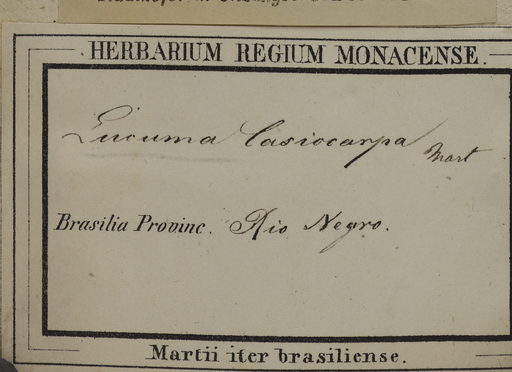 HERBARIUM REGIUM MONACENSE.
Lucuma lasiocarpa
Mart
Brasilia Provinc. Rio Negro.
Martii iter brasiliense.